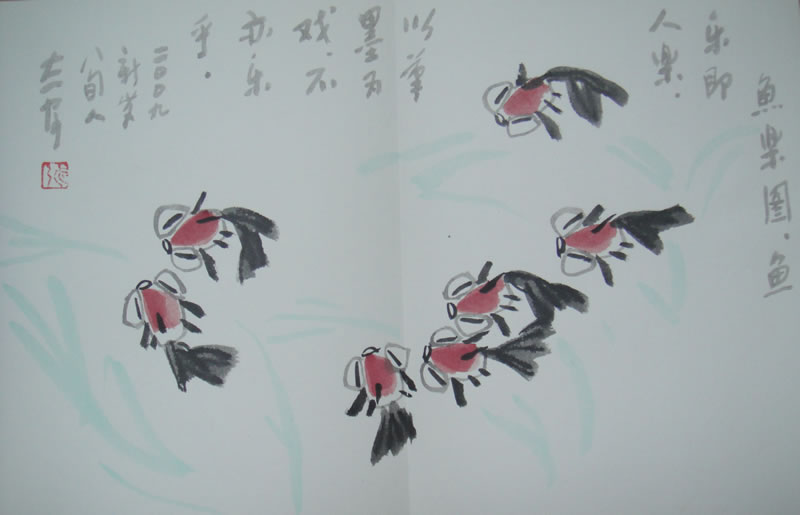 魚樂圖、魚
乐即
人樂.
以筆
墨为
戏、不
亦乐
乎.
二〇〇九
新岁
八旬人